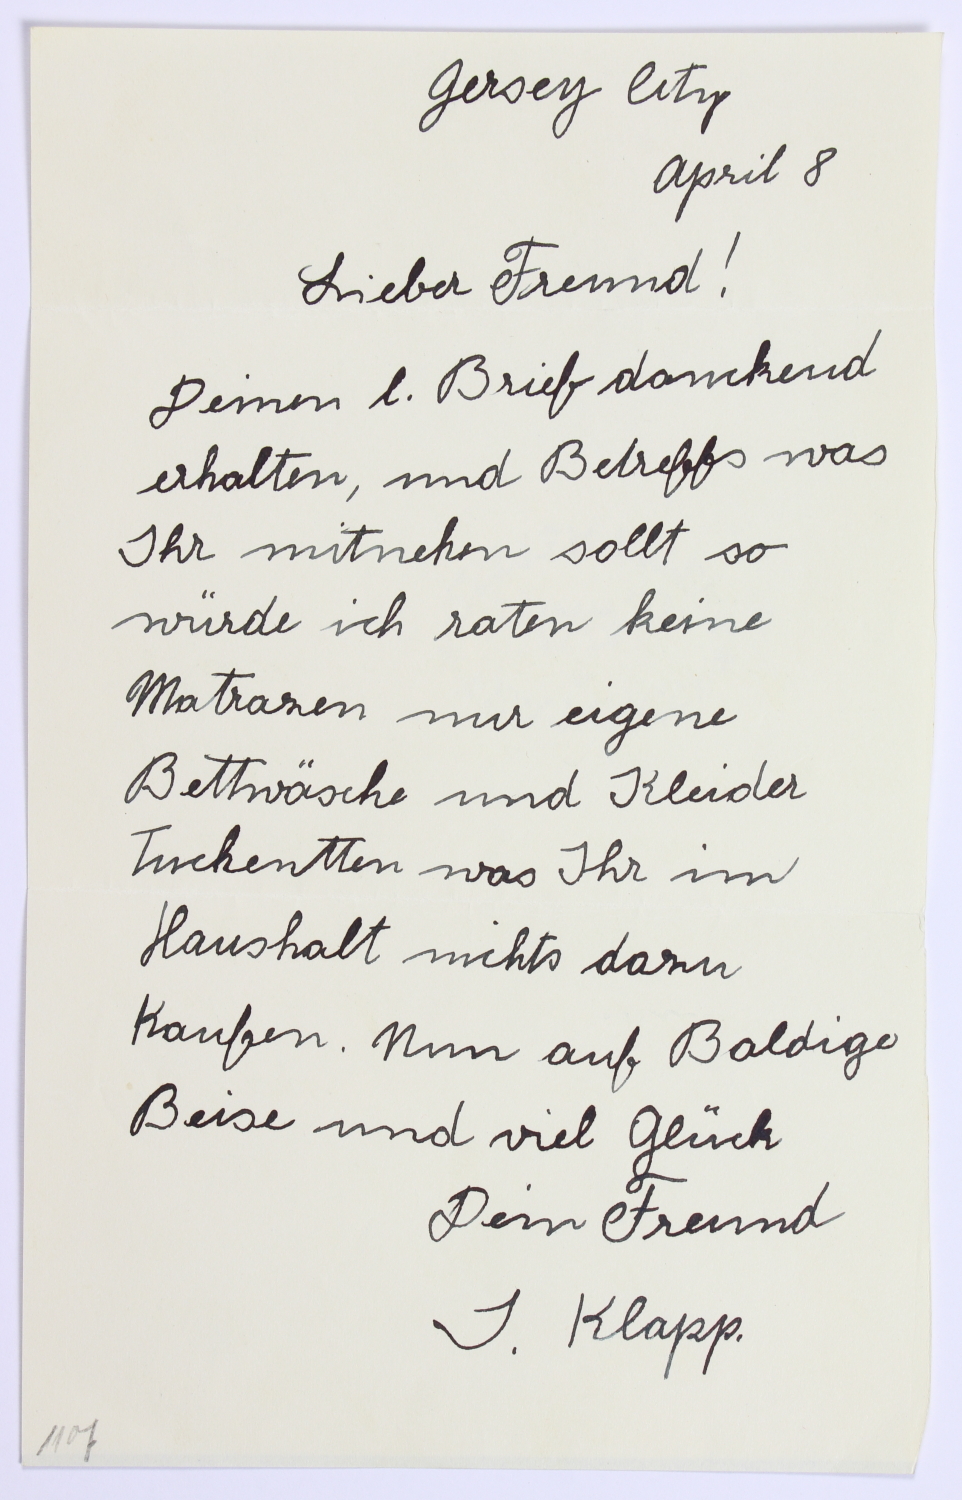 Jersey City
April 8
Lieber Freund!
Deinen l. Brief danckend
erhalten, und Betreffs was
Ihr mitnehen sollt so
würde ich raten keine
Matrazen nur eigene
Bettwäsche und Kleider
Tuckentten was Ihr im
Haushalt nichts dazu
Kaufen. Nun auf Baldige
Beise und viel Glück
Dein Freund
J. Klapp.